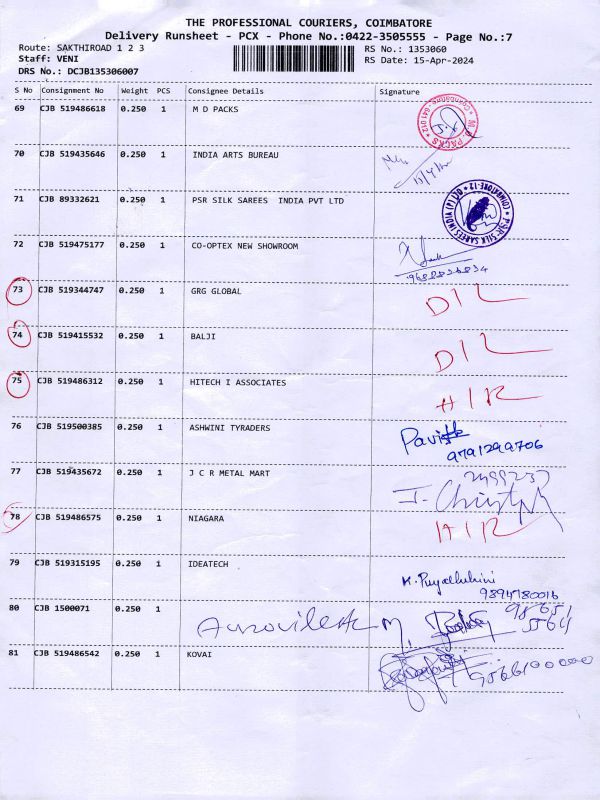 THE PROFESSIONAL COURIERS, COIMBATORE
Delivery Runsheet - PCX - Phone No.:0422-3505555 - Page No.:7
Route: SAKTHIROAD 1 2 3
RS No.: 1353060
Staff: VENI
RS Date: 15-Apr-2024
DRS No.: DCJB135306007
S No Consignment No Weight PCS Consignee Details Signature
69 CJB 519486618 0.250 1 M D PACKS
70 CJB 519435646 0.250 1 INDIA ARTS BUREAU
71 CJB 89332621 0.250 1 PSR SILK SAREES INDIA PVT LTD
72 CJB 519475177 0.250 1 CO-OPTEX NEW SHOWROOM
73 CJB 519344747 0.250 1 GRG GLOBAL D/L
74 CJB 519415532 0.250 1 BALJI D/L
75 CJB 519486312 0.250 1 HITECH I ASSOCIATES
76 CJB 519500385 0.250 1 ASHWINI TYRADERS
9791299706
77 CJB 519435672 0.250 1 J C R METAL MART
78 CJB 519486575 0.250 1 NIAGARA
79 CJB 519315195 0.250 1 IDEATECH
9894780016
80 CJB 1500071 0.250 1
81 CJB 519486542 0.250 1 KOVAI